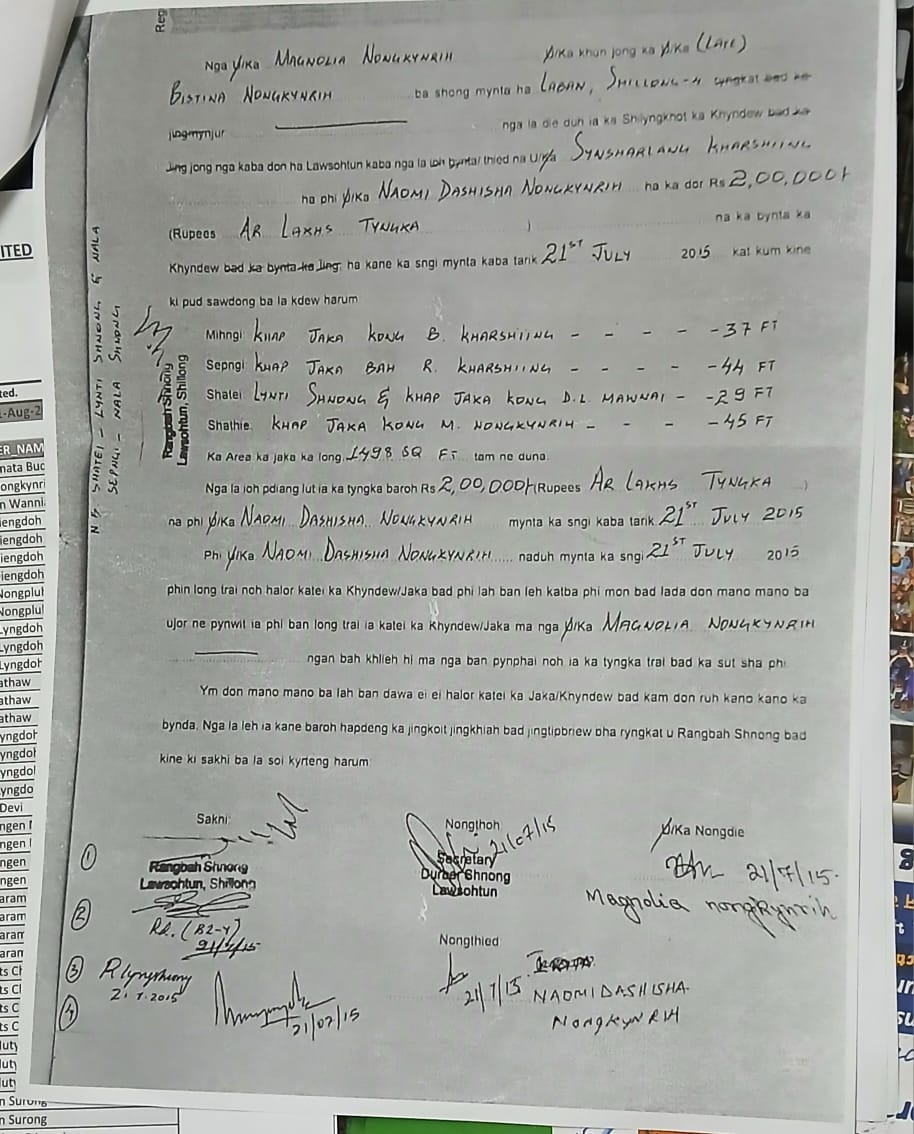 Reg
Nga U/Ka MAGNOLIA NONGKYNRIH U/Ka khun jong ka U/Ka (LATE)
BISTINA NONGKYNRIH ba shong mynta ha LABAN, SHILLONG-4 syngkat bad ka
jingmynjur nga la die duh ia ka Shilyngknot ka Khyndew bad ka
Jing jong nga kaba don ha Lawsohtun kaba nga la ioh bynta/ thied na U/Ka SYNSHARLANG KHARSHIING
ha phi U/Ka NAOMI DASHISHA NONGKYNRIH ha ka dor Rs 2,00,000/-
(Rupees AR LAKHS TYNGKA ) na ka bynta ka
Khyndew bad ka bynta ka Jing: ha kane ka sngi mynta kaba tarik 21ST JULY 2015 kat kum kine
ki pud sawdong ba la kdew harum
Mihngi KHAP JAKA KONG B. KHARSHIING - - - - -37 FT
Sepngi KHAP JAKA BAH R. KHARSHIING - - - -44 FT
Shatei LYNTI SHNONG & KHAP JAKA KONG D.L. MAWNAI - -29 FT
Shathie KHAP JAKA KONG M. NONGKYNRIH - - - -45 FT
Ka Area ka jaka ka long 1498 SQ FT tam ne duna.
Nga la ioh pdiang lut ia ka tyngka baroh Rs 2,00,000/- (Rupees AR LAKHS TYNGKA )
na phi U/Ka NAOMI DASHISHA NONGKYNRIH mynta ka sngi kaba tarik 21ST JULY 2015
Phi U/Ka NAOMI DASHISHA NONGKYNRIH...... naduh mynta ka sngi 21ST JULY 2015
phin long trai noh halor katei ka Khyndew/Jaka bad phi lah ban leh katba phi mon bad lada don mano mano ba
ujor ne pynwit ia phi ban long trai ia katei ka Khyndew/Jaka ma nga U/Ka MAGNOLIA NONGKYNRIH
ngan bah khlieh hi ma nga ban pynphai noh ia ka tyngka trai bad ka sut sha phi
Ym don mano mano ba lah ban dawa ei ei halor katei ka Jaka/Khyndew bad kam don ruh kano kano ka
bynda. Nga la leh ia kane baroh hapdeng ka jingkoit jingkhiah bad jingtipbriew bha ryngkat u Rangbah Shnong bad
kine ki sakhi ba la soi kyrteng harum
N B SHATEI - LYNTI SHNONG & NALA
SEPNGI - NALA SHNONG
Rangbah Shnong
Lawsohtun, Shillong
Sakhi:
1
Rangbah Shnong
Lawsohtun, Shillong
2
3
21.7.2015
4
21/02/15
Nongthoh
21/07/15
Secretary
Durbar Shnong
Lawsohtun
U/Ka Nongdie
21/7/15.
Magnolia nongkynrih
Nongthied
21/7/15
NAOMI DASHISHA
NONGKYNRIH
ITED
ted.
-Aug-2
ER_NAM
nata Buc
ongkynri
n Wanni
iengdoh
iengdoh
iengdoh
iengdoh
Nongplul
Nongplul
Lyngdoh
Lyngdoh
Lyngdoh
athaw
athaw
athaw
yngdoh
yngdol
yngdol
yngdo
Devi
ngen
ngen
ngen
ngen
aram
aram
aram
aran
ts Cl
ts Cl
ts C
ts C
luty
luty
luty
n Surong
n Surong